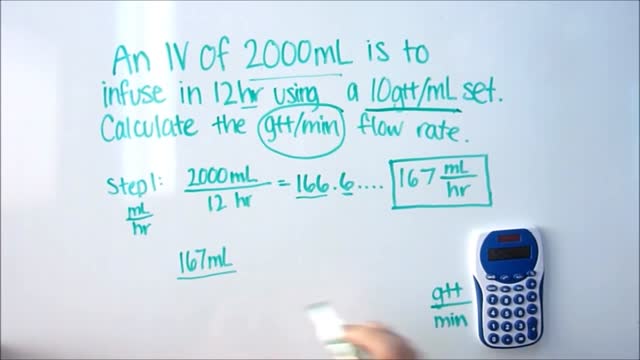 An IV of 2000mL is to
infuse in 12hr using a 10gtt/mL set.
Calculate the gtt/min flow rate.
Step 1: 2000mL / 12 hr = 166.6.... 167 mL/hr
mL/hr
167mL
gtt/min